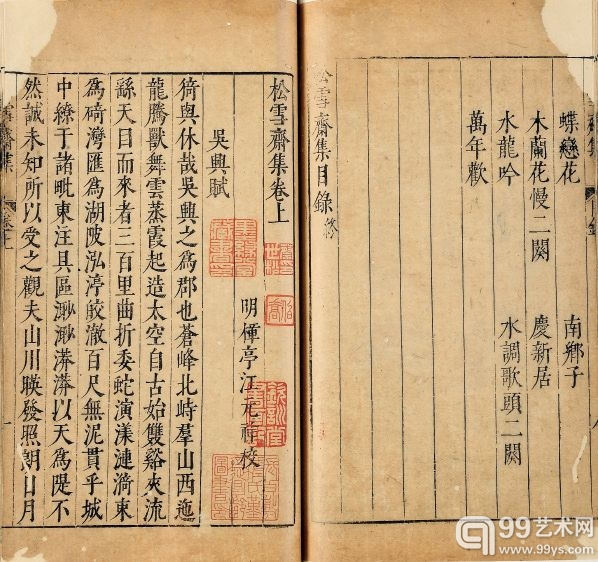 蝶戀花 南鄉子
木蘭花慢二闋 慶新居
水龍吟 水調歌頭二闋
萬年歡
松雪齋集目錄終
松雪齋集卷上
明 亭江元祚校
吳興賦
猗與休哉吳興之為郡也蒼峰北峙羣山西迤
龍騰獸舞雲蒸霞起造太空自古始雙谿夾流
繇天目而來者三百里曲折委蛇演漾漣漪東
為碕灣匯為湖陂泓渟皎澈百尺無泥貫乎城
中繚于諸毗東注具區渺渺漭漭以天為隄不
然誠未知所以受之觀夫山川暎發照朗日月
一
99艺术网
www.99ys.com